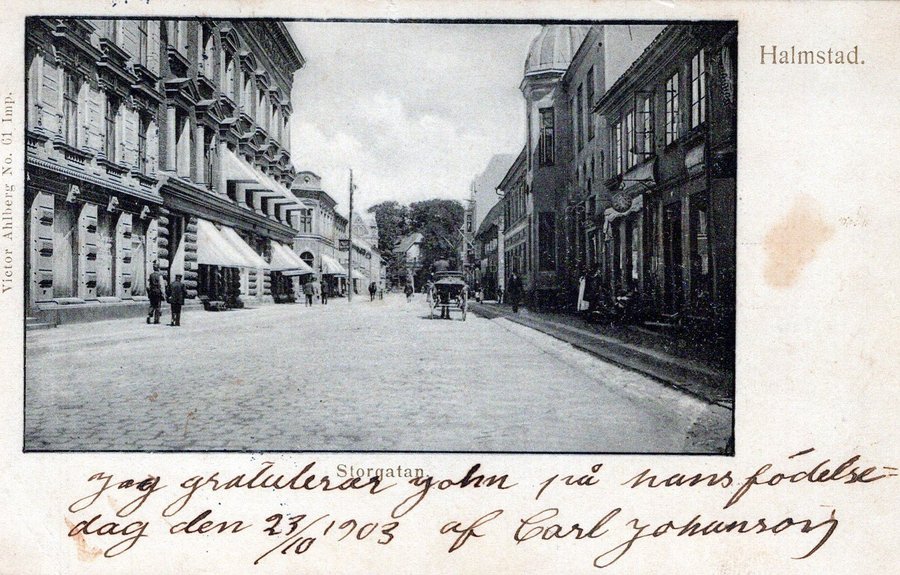 Halmstad.
Victor Ahlberg No. 61 Imp.
Storgatan.
Jag gratulerar John på hans födelse=
dag den 23/10 1903 af Carl Johanson